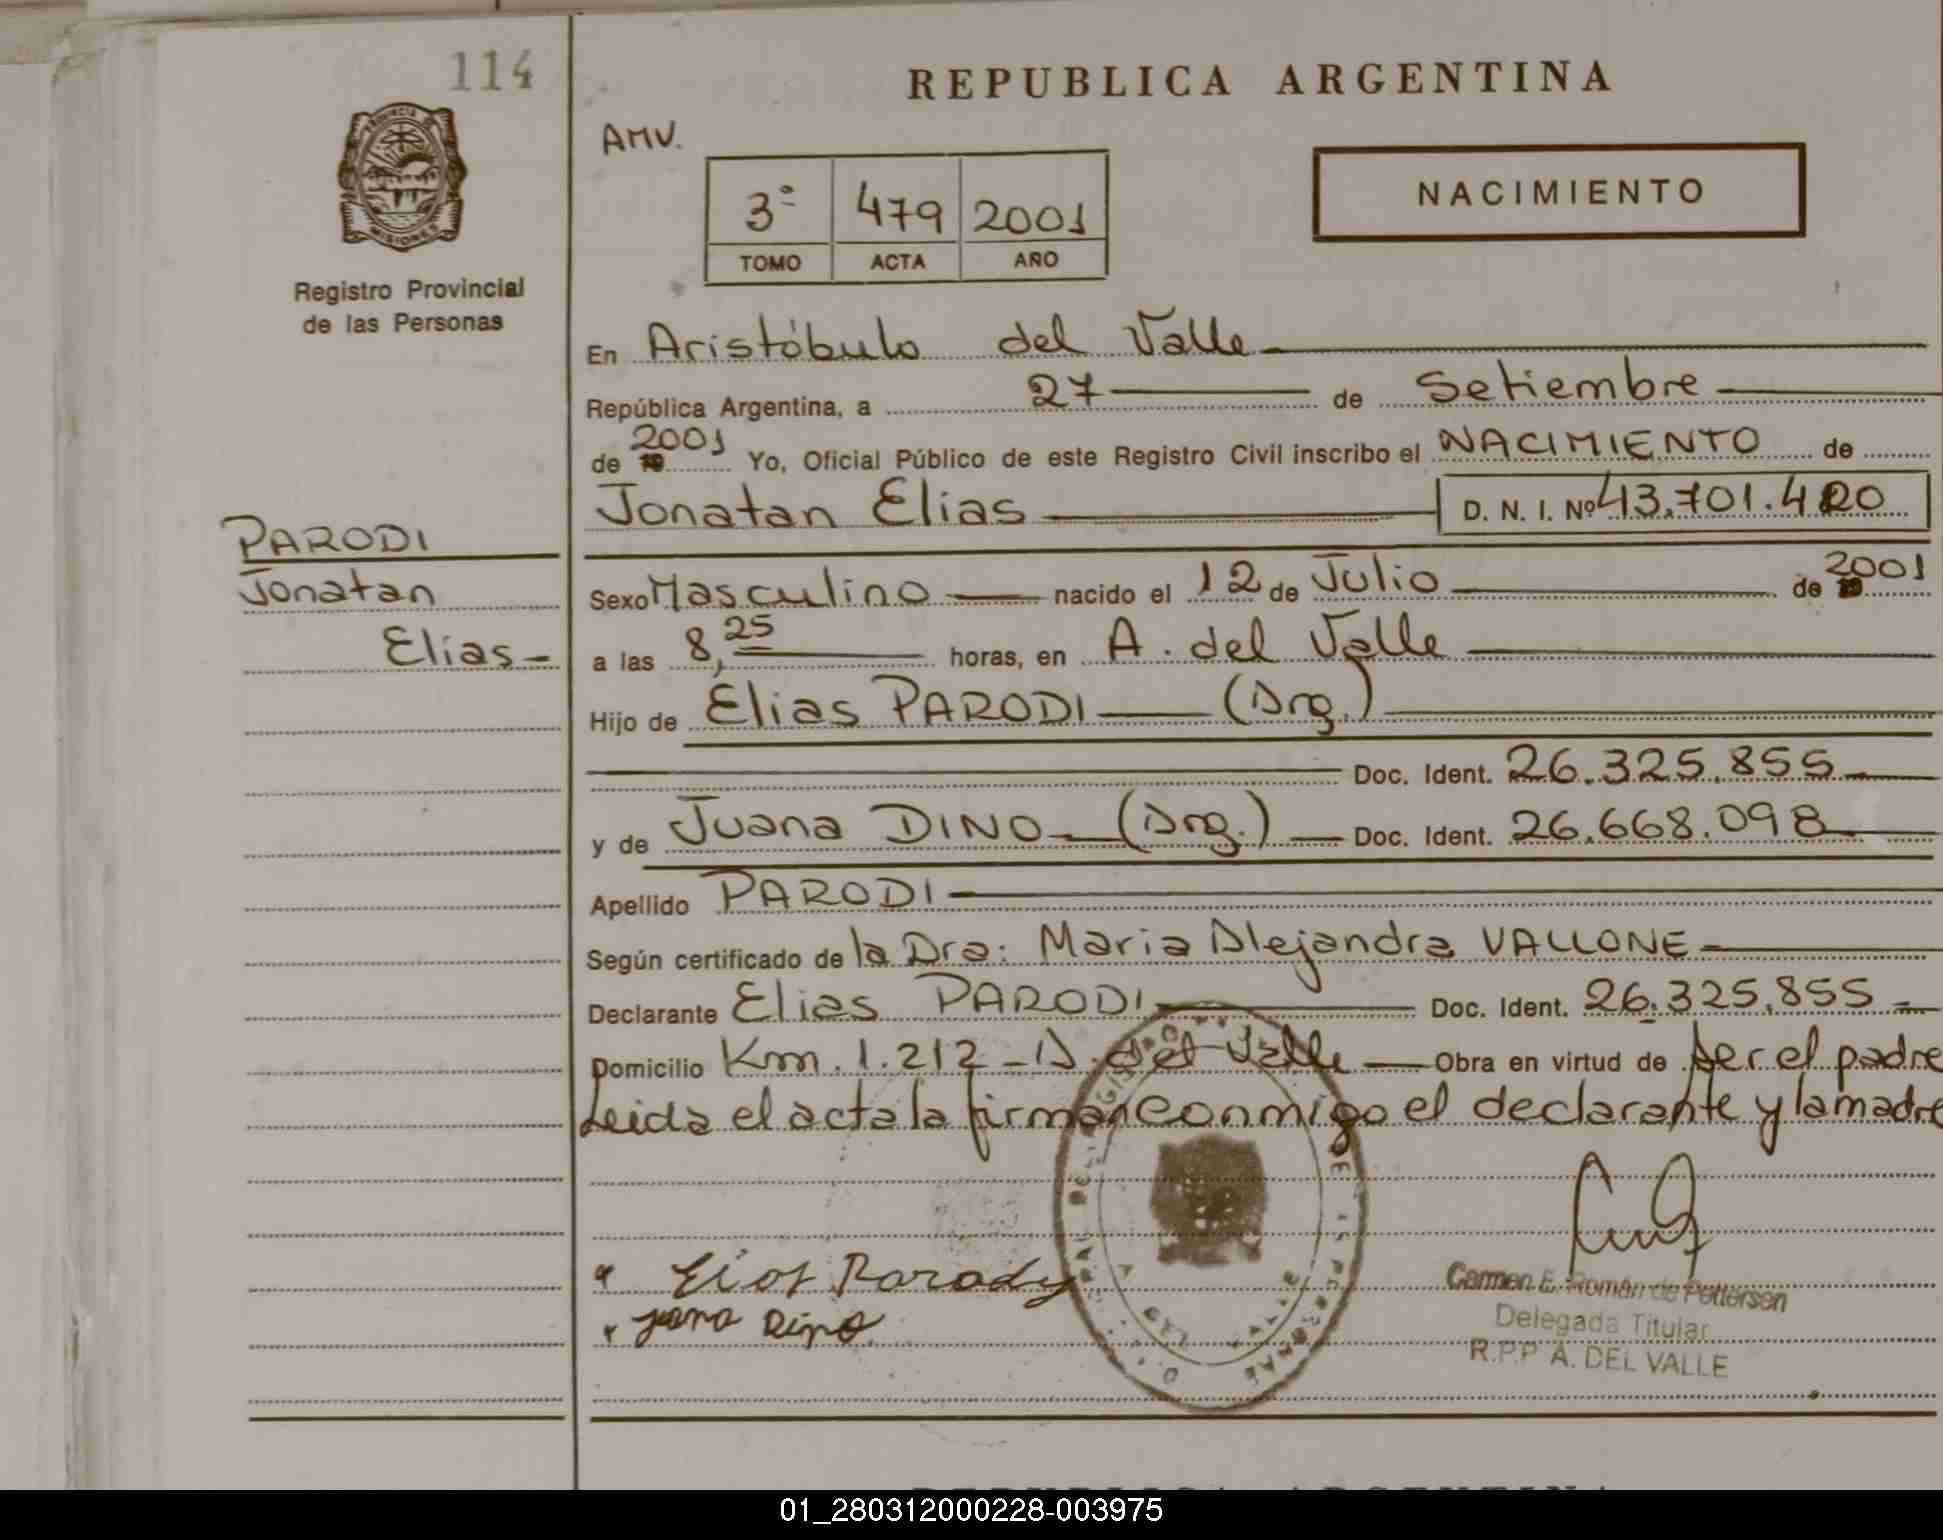 114
REPUBLICA ARGENTINA
AMV.
PROVINCIA DE
MISIONES
3ª 479 2001
TOMO ACTA AÑO
NACIMIENTO
Registro Provincial
de las Personas
En Aristóbulo del Valle
República Argentina, a 27 de Setiembre
de 2001 Yo, Oficial Público de este Registro Civil inscribo el NACIMIENTO de
Jonatan Elias D. N. I. Nº 43.701.420
PARODI
Jonatan
Elias-
Sexo Masculino nacido el 12 de Julio de 2001
a las 8,25 horas, en A. del Valle
Hijo de Elias PARODI (Arg.)
Doc. Ident. 26.325.855
y de Juana DINO (Arg.) Doc. Ident. 26.668.098
Apellido PARODI
Según certificado de la Dra: Maria Alejandra VALLONE
Declarante Elias PARODI Doc. Ident. 26.325.855
Domicilio Km. 1.212 - A. del Valle Obra en virtud de ser el padre
Leida el acta la firman conmigo el declarante y la madre
Parody
Dino
Carmen E. Román de Pettersen
Delegada Titular
R.P.P A. DEL VALLE
REPUBLICA ARGENTINA
01_280312000228-003975